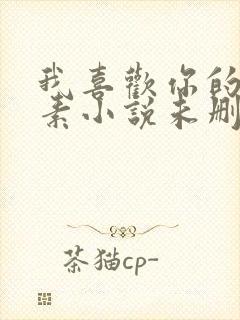 我喜歡你的
素小說未刪
茶猫cp-